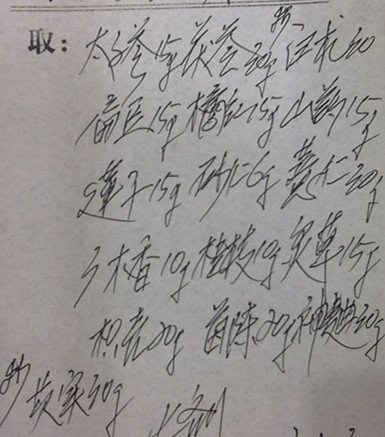 取：太子参15g 茯苓30g 炒白术30
扁豆15g 橘红15g 山药15g
莲子15g 砂仁6g 薏仁30g
广木香10g 桂枝10g 炙草15g
枳壳20g 茵陈20g 神曲30g
炒芡实30g